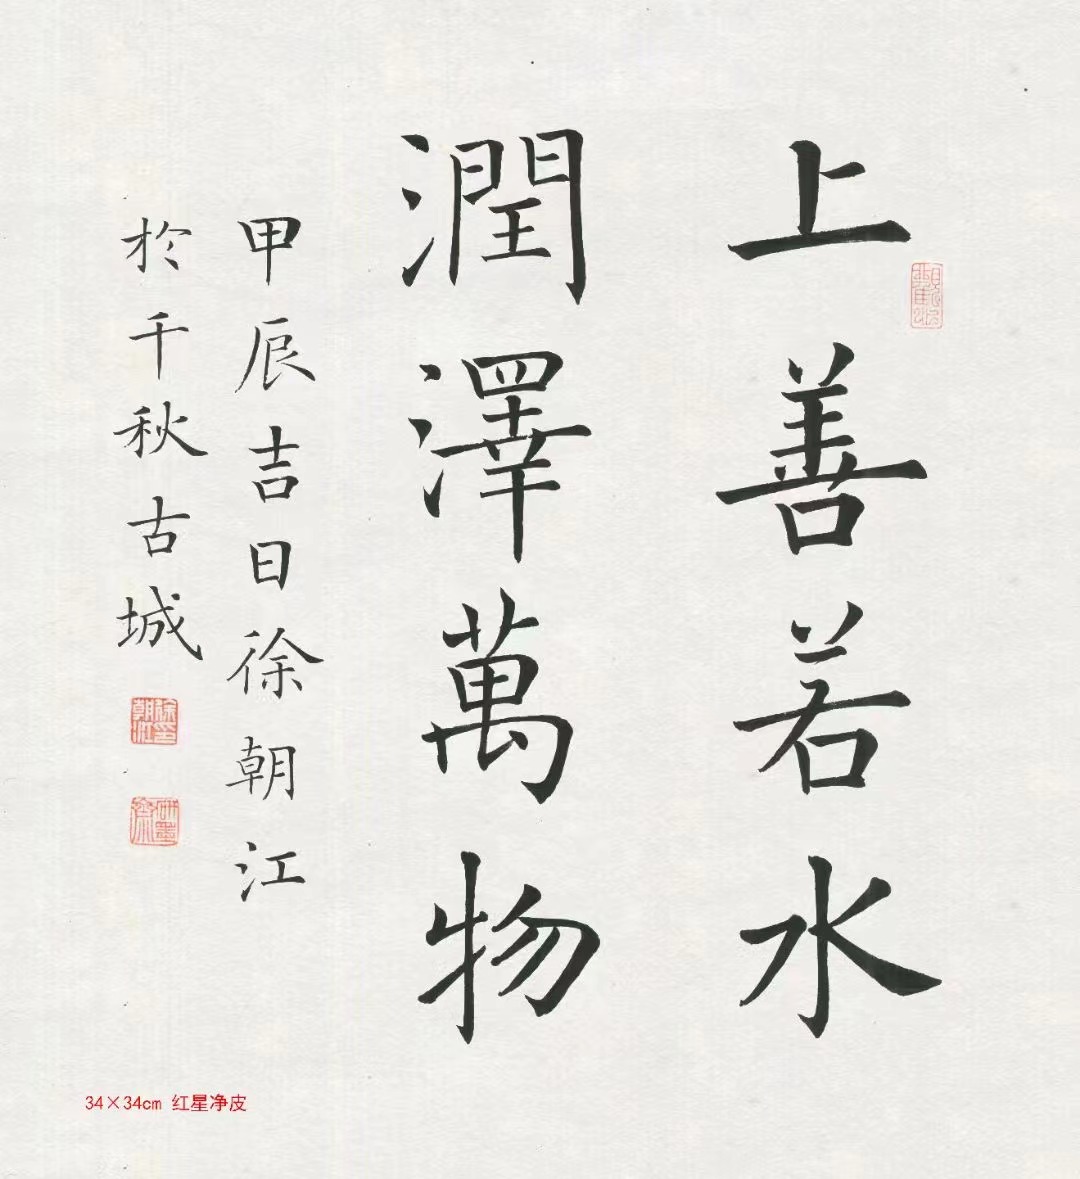 上善若水
潤澤萬物
甲辰吉日徐朝江
於千秋古城
徐朝江印
研墨齋
34×34cm 红星净皮